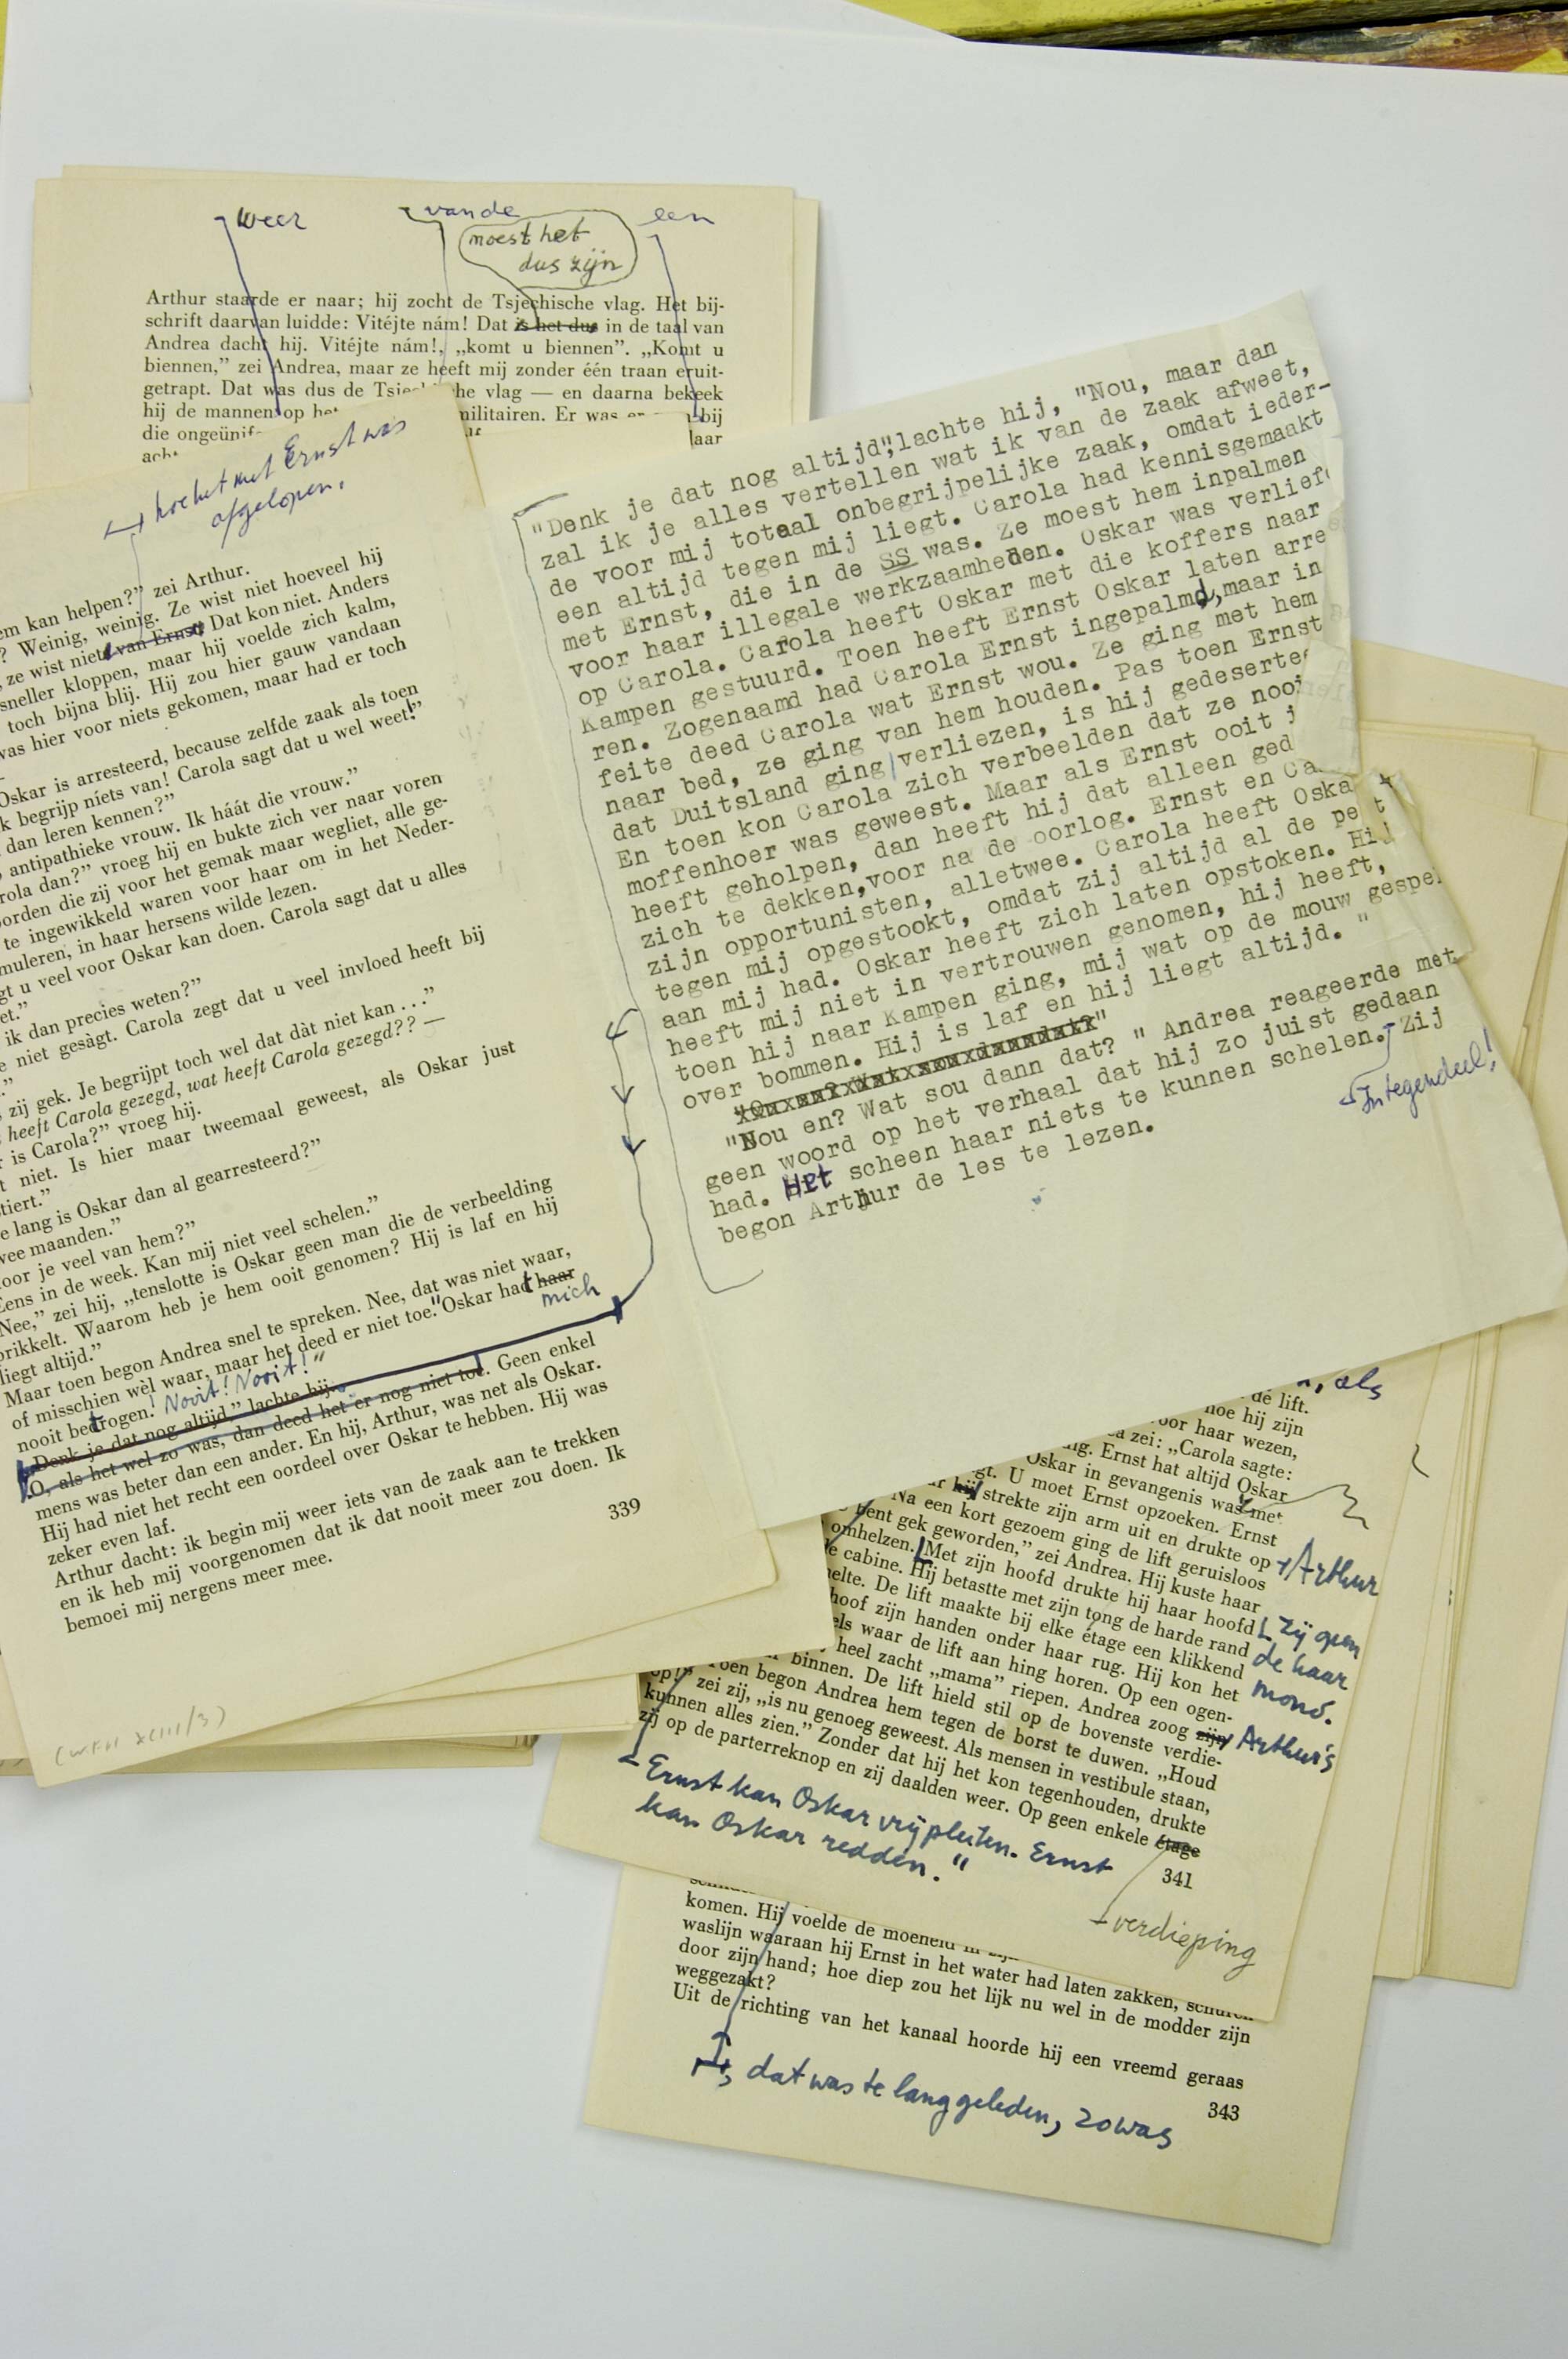 weer
van de
een
moest het
dus zijn
Arthur staarde er naar; hij zocht de Tsjechische vlag. Het bij-
schrift daarvan luidde: Vitéjte nám! Dat is het dus in de taal van
Andrea dacht hij. Vitéjte nám!, „komt u biennen”. „Komt u
biennen,” zei Andrea, maar ze heeft mij zonder één traan eruit-
getrapt. Dat was dus de he vlag — en daarna bekeek
hij de mannen op militairen. Er was bij
die laar
hoe het met Ernst was
afgelopen.
em kan helpen?” zei Arthur.
? Weinig, weinig. Ze wist niet hoeveel hij
, ze wist niets van Ernst. Dat kon niet. Anders
sneller kloppen, maar hij voelde zich kalm,
toch bijna blij. Hij zou hier gauw vandaan
was hier voor niets gekomen, maar had er toch
Oskar is arresteerd, because zelfde zaak als toen
k begrijp níets van! Carola sagt dat u wel weet!”
dan leren kennen?”
antipathieke vrouw. Ik háát die vrouw.”
rola dan?” vroeg hij en bukte zich ver naar voren
orden die zij voor het gemak maar wegliet, alle ge-
te ingewikkeld waren voor haar om in het Neder-
muleren, in haar hersens wilde lezen.
gt u veel voor Oskar kan doen. Carola sagt dat u alles
et.”
ik dan precies weten?”
e niet gesàgt. Carola zegt dat u veel invloed heeft bij
.”
, zij gek. Je begrijpt toch wel dat dàt niet kan . . .”
heeft Carola gezegd, wat heeft Carola gezegd?? —
r is Carola?” vroeg hij.
t niet. Is hier maar tweemaal geweest, als Oskar just
tiert.”
e lang is Oskar dan al gearresteerd?”
wee maanden.”
oor je veel van hem?”
Eens in de week. Kan mij niet veel schelen.”
Nee,” zei hij, „tenslotte is Oskar geen man die de verbeelding
prikkelt. Waarom heb je hem ooit genomen? Hij is laf en hij
liegt altijd.”
Maar toen begon Andrea snel te spreken. Nee, dat was niet waar,
of misschien wèl waar, maar het deed er niet toe." Oskar hat haar
mich
nooit betrogen! Nooit! Nooit!"
„Denk je dat nog altijd,” lachte hij.
O, als het wel zo was, dan deed het er nog niet toe. Geen enkel
mens was beter dan een ander. En hij, Arthur, was net als Oskar.
Hij had niet het recht een oordeel over Oskar te hebben. Hij was
zeker even laf.
Arthur dacht: ik begin mij weer iets van de zaak aan te trekken
en ik heb mij voorgenomen dat ik dat nooit meer zou doen. Ik
bemoei mij nergens meer mee.
339
"Denk je dat nog altijd", lachte hij, "Nou, maar dan
zal ik je alles vertellen wat ik van de zaak afweet,
de voor mij totaal onbegrijpelijke zaak, omdat ieder-
een altijd tegen mij liegt. Carola had kennisgemaakt
met Ernst, die in de SS was. Ze moest hem inpalmen
voor haar illegale werkzaamheden. Oskar was verliefd
op Carola. Carola heeft Oskar met die koffers naar
Kampen gestuurd. Toen heeft Ernst Oskar laten arre
ren. Zogenaamd had Carola Ernst ingepalmd, maar in
feite deed Carola wat Ernst wou. Ze ging met hem
naar bed, ze ging van hem houden. Pas toen Ernst
dat Duitsland ging verliezen, is hij gedeserteer
En toen kon Carola zich verbeelden dat ze nooi
moffenhoer was geweest. Maar als Ernst ooit j
heeft geholpen, dan heeft hij dat alleen ged
zich te dekken, voor na de oorlog. Ernst en Ca
zijn opportunisten, alletwee. Carola heeft Oska
tegen mij opgestookt, omdat zij altijd al de pe t
aan mij had. Oskar heeft zich laten opstoken. Hij
heeft mij niet in vertrouwen genomen, hij heeft,
toen hij naar Kampen ging, mij wat op de mouw gespel
over bommen. Hij is laf en hij liegt altijd. "
"Nou en? Wat sou dann dat? " Andrea reageerde met
geen woord op het verhaal dat hij zo juist gedaan
had. Het scheen haar niets te kunnen schelen. Zij
Integendeel!
begon Arthur de les te lezen.
, als
de lift.
hoe hij zijn
oor haar wezen,
a zei: „Carola sagte:
ng. Ernst hat altijd Oskar
Oskar in gevangenis was met
gt. U moet Ernst opzoeken. Ernst
hij strekte zijn arm uit en drukte op
Arthur
Na een kort gezoem ging de lift geruisloos
bent gek geworden,” zei Andrea. Hij kuste haar
omhelzen. Met zijn hoofd drukte hij haar hoofd
Zij open
de haar
mond.
e cabine. Hij betastte met zijn tong de harde rand
elte. De lift maakte bij elke étage een klikkend
hoof zijn handen onder haar rug. Hij kon het
els waar de lift aan hing horen. Op een ogen-
heel zacht „mama” riepen. Andrea zoog zijn
Arthur's
binnen. De lift hield stil op de bovenste verdie-
Toen begon Andrea hem tegen de borst te duwen. „Houd
op!” zei zij, „is nu genoeg geweest. Als mensen in vestibule staan,
kunnen alles zien.” Zonder dat hij het kon tegenhouden, drukte
zij op de parterreknop en zij daalden weer. Op geen enkele étage
Ernst kan Oskar vrijpleiten. Ernst
kan Oskar redden."
341
verdieping
komen. Hij voelde de moeheid in
waslijn waaraan hij Ernst in het water had laten zakken, schuren
door zijn hand; hoe diep zou het lijk nu wel in de modder zijn
weggezakt?
Uit de richting van het kanaal hoorde hij een vreemd geraas
, dat was te lang geleden, zo was
343